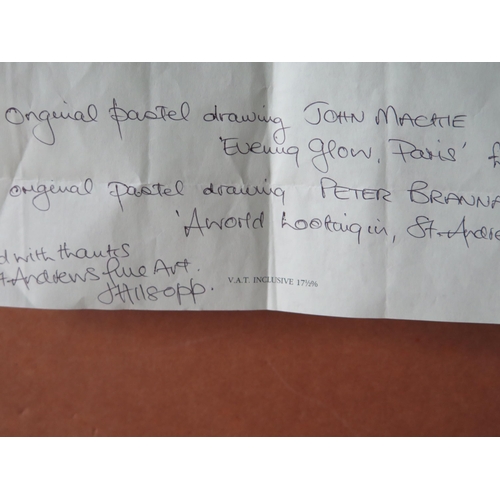 Original pastel drawing JOHN MACKIE
'Evening glow, Paris' £
original pastel drawing PETER BRANNA
'A world looking in, St. Andre
d with thanks
t. Andrews fine Art.
V.A.T. INCLUSIVE 17½%